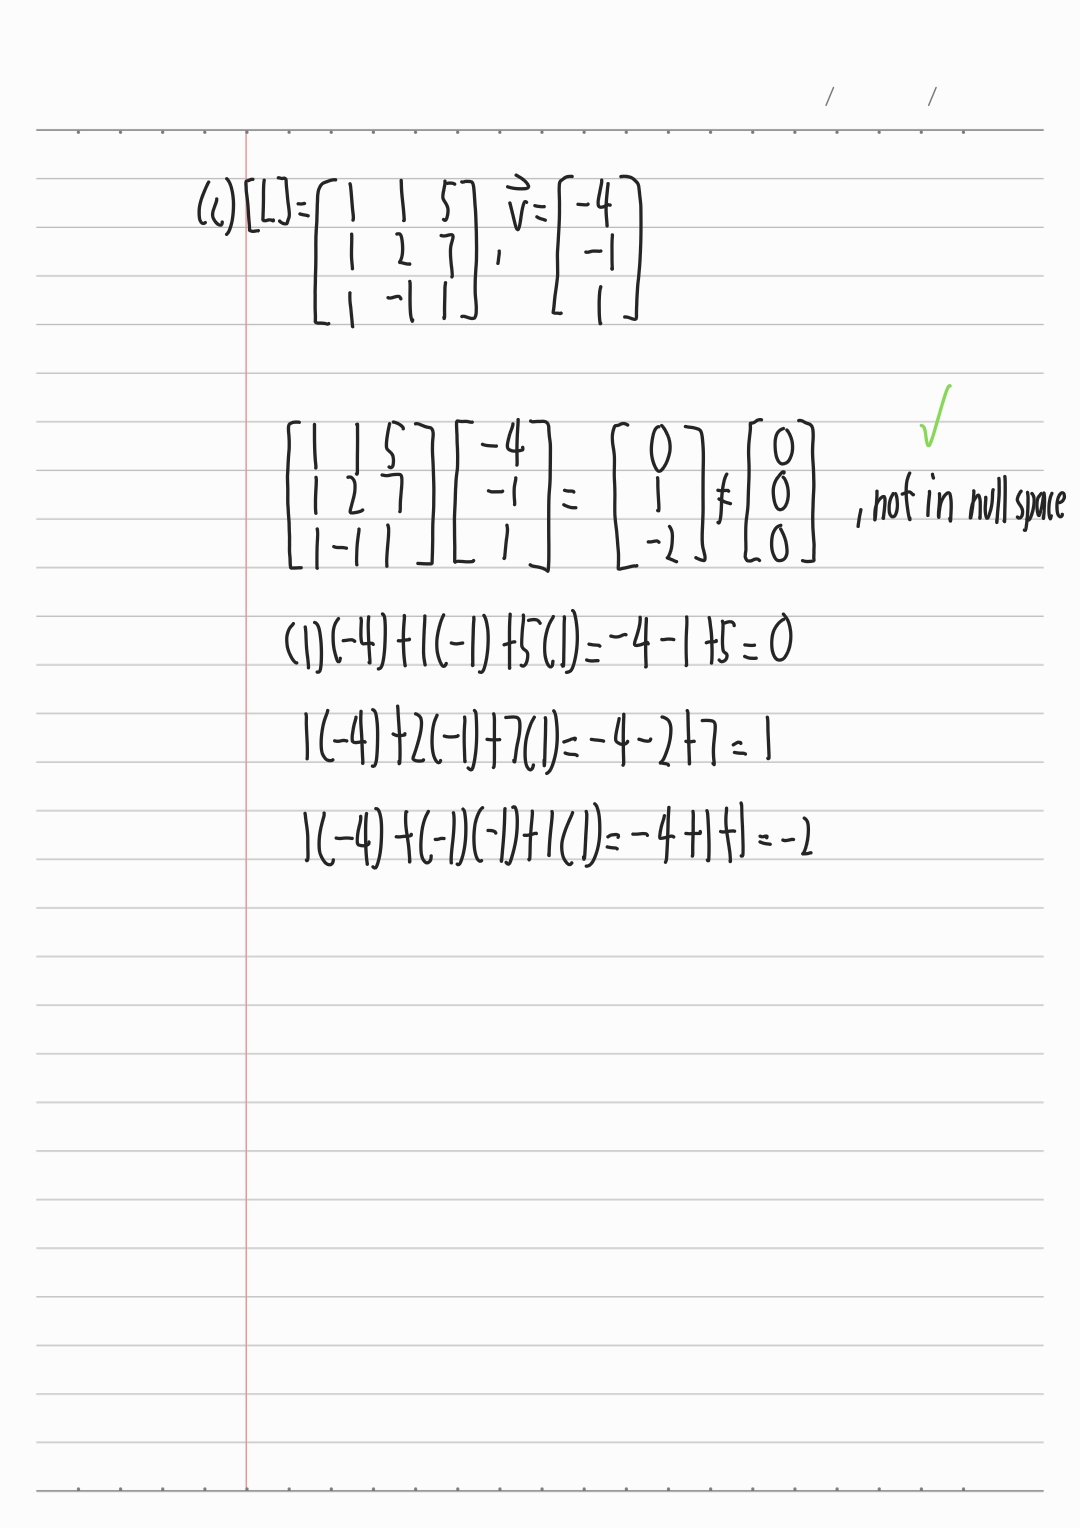 (c) [L] = [1 1 5; 1 2 7; 1 -1 1], v⃗ = [-4; -1; 1]
[1 1 5; 1 2 7; 1 -1 1] [-4; -1; 1] = [0; 1; -2] ≠ [0; 0; 0], not in null space
(1)(-4)+1(-1)+5(1)=-4-1+5=0
1(-4)+2(-1)+7(1)=-4-2+7=1
1(-4)+(-1)(-1)+1(1)=-4+1+1=-2